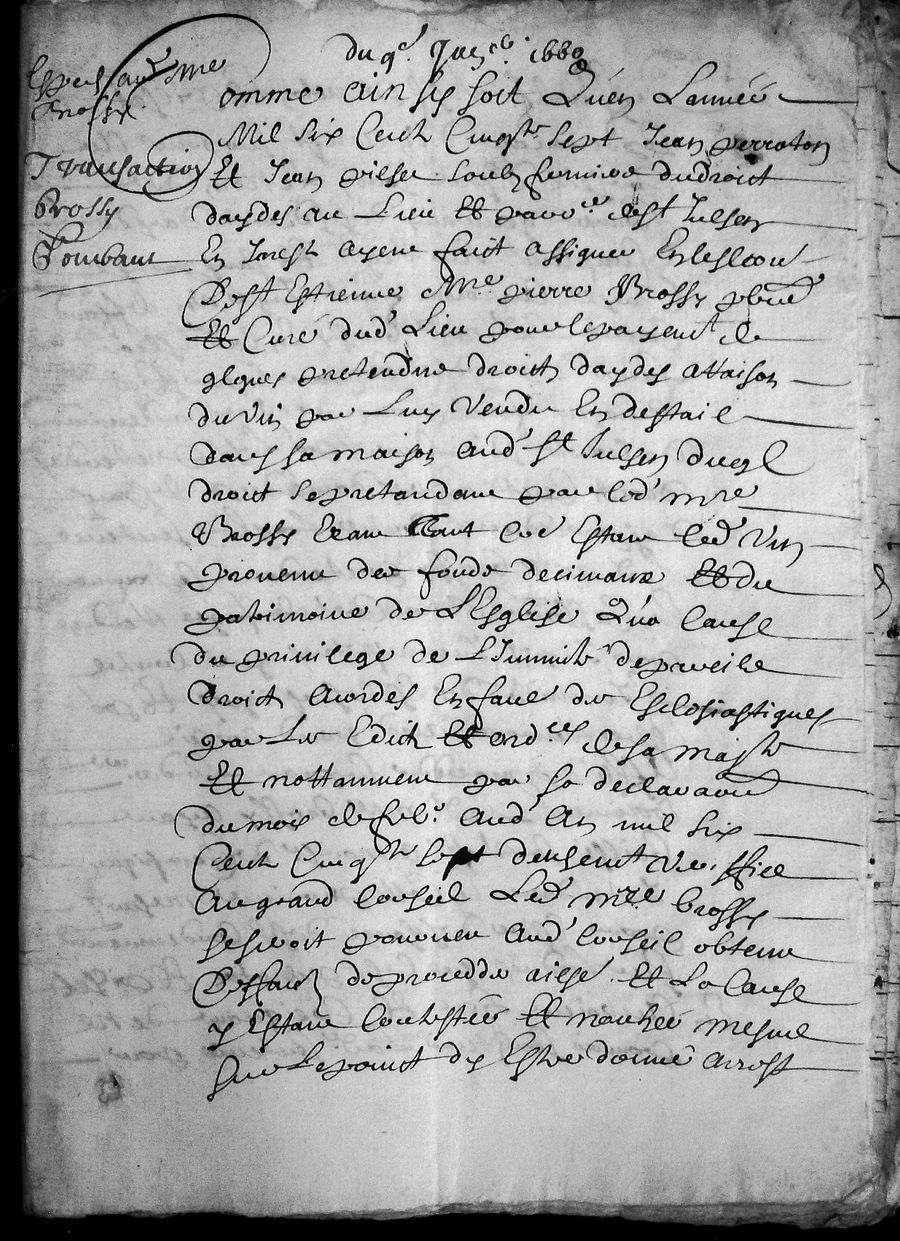 du 9e Janr 1660
Transaction
Brossy
omme Ainsy soit Qu'en L'année
Mil six Cent Cinqte sept Jean perroton
Et Jean soubz fermiers du droict
daydes au Lieu Et parroe de st Julsen
En Jarest ayent faict assigner En leslection
De st Estienne Mre pierre Brossy pbre
Et Curé dud Lieu pour le payemt de
qlques pretendus droictz daydes a Raison
du vin par Luy vendu En destail
dans sa maison aud st Julsen duql
droict se pretandant par led mre
Brossy Exant Tant a cause Estant led vin
provenu des fondz decimaux Et du
patrimoine de L'Esglise Qu'a Cause
du privilege de L'Immunité de pareilz
droictz acordés En faveur des Eclesiastiques
par Les Edictz Et ordces de sa majté
Et nottamment par sa declaraon
du mois de febr aud An mil six
Cent Cinqte sept deuhemt veriffiee
Au grand Conseil Led mre brossy
se seroit pourveu Aud Conseil obtenu
Deffances de proceder Et La Cause
y Estant Contestée Et mesme
sur Le point dy Estre donné arrest